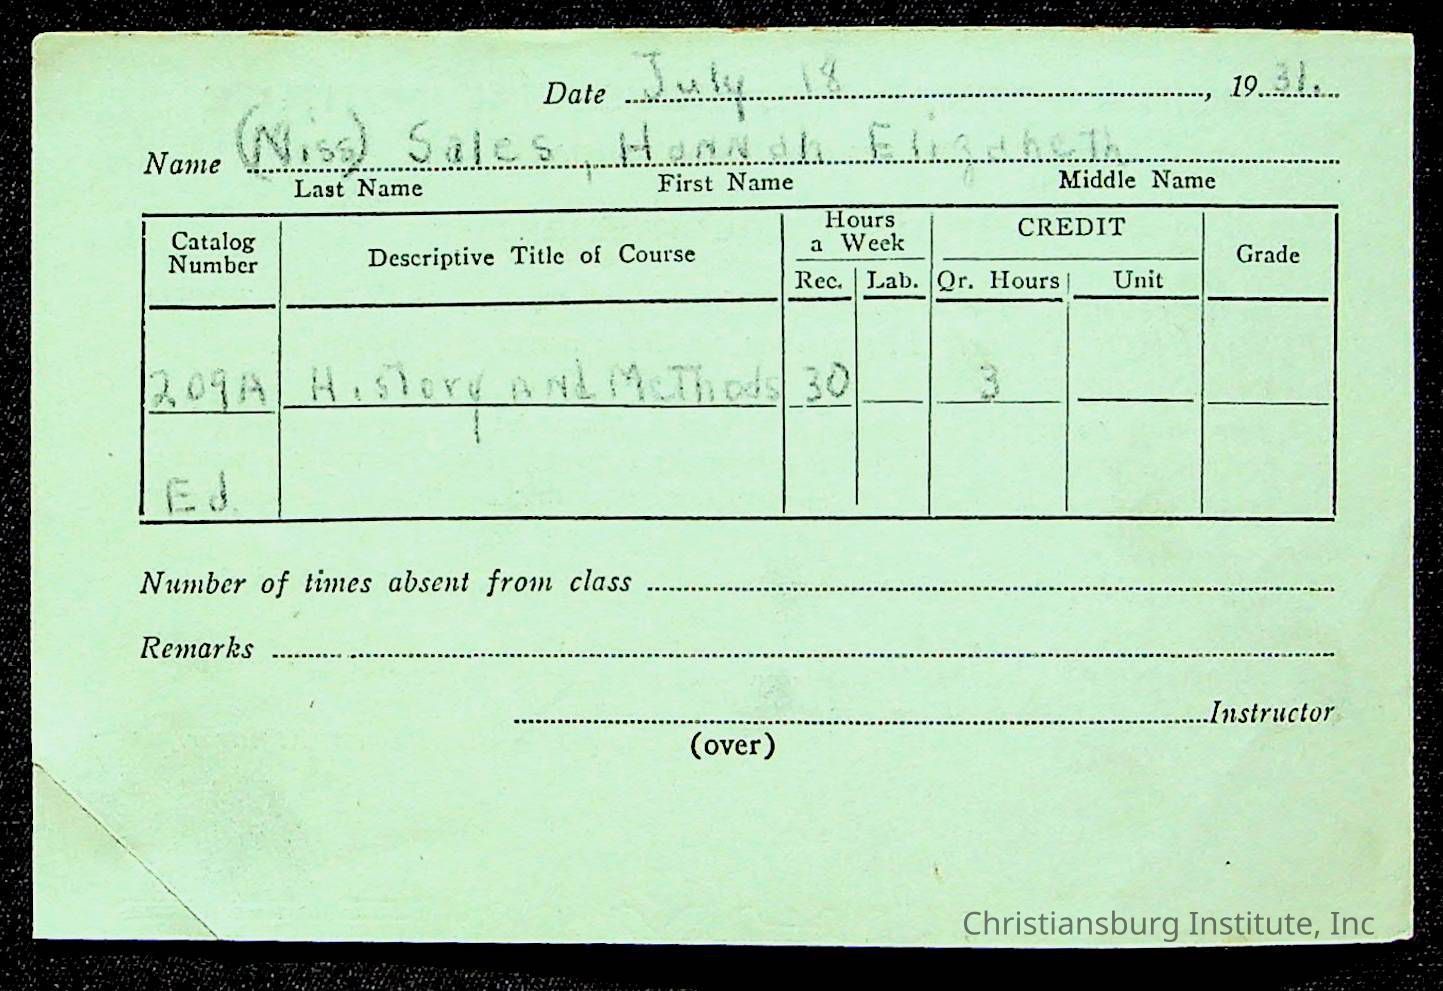 Date July 18, 1931.
Name (Miss) Sales, Hannah Elizabeth
Last Name First Name Middle Name
Catalog Number Descriptive Title of Course Hours a Week CREDIT Grade
Rec. Lab. Qr. Hours Unit
209A History and Methods 30 3
Ed.
Number of times absent from class
Remarks
Instructor
(over)
Christiansburg Institute, Inc